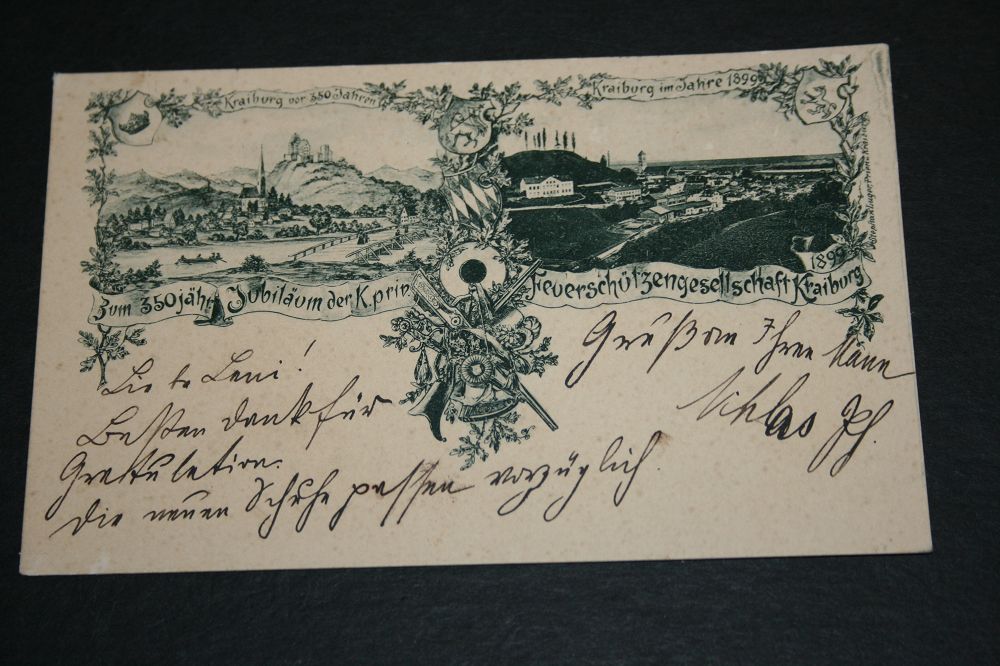 Kraiburg vor 350 Jahren
Kraiburg im Jahre 1899
Zum 350 jähr Jubiläum der K. priv Feuerschützengesellschaft Kraiburg 1899
Liebe Leni!
Besten Dank für
Gratulation.
Die neuen Schuhe passen vorzüglich.
Gruß an Ihren Mann